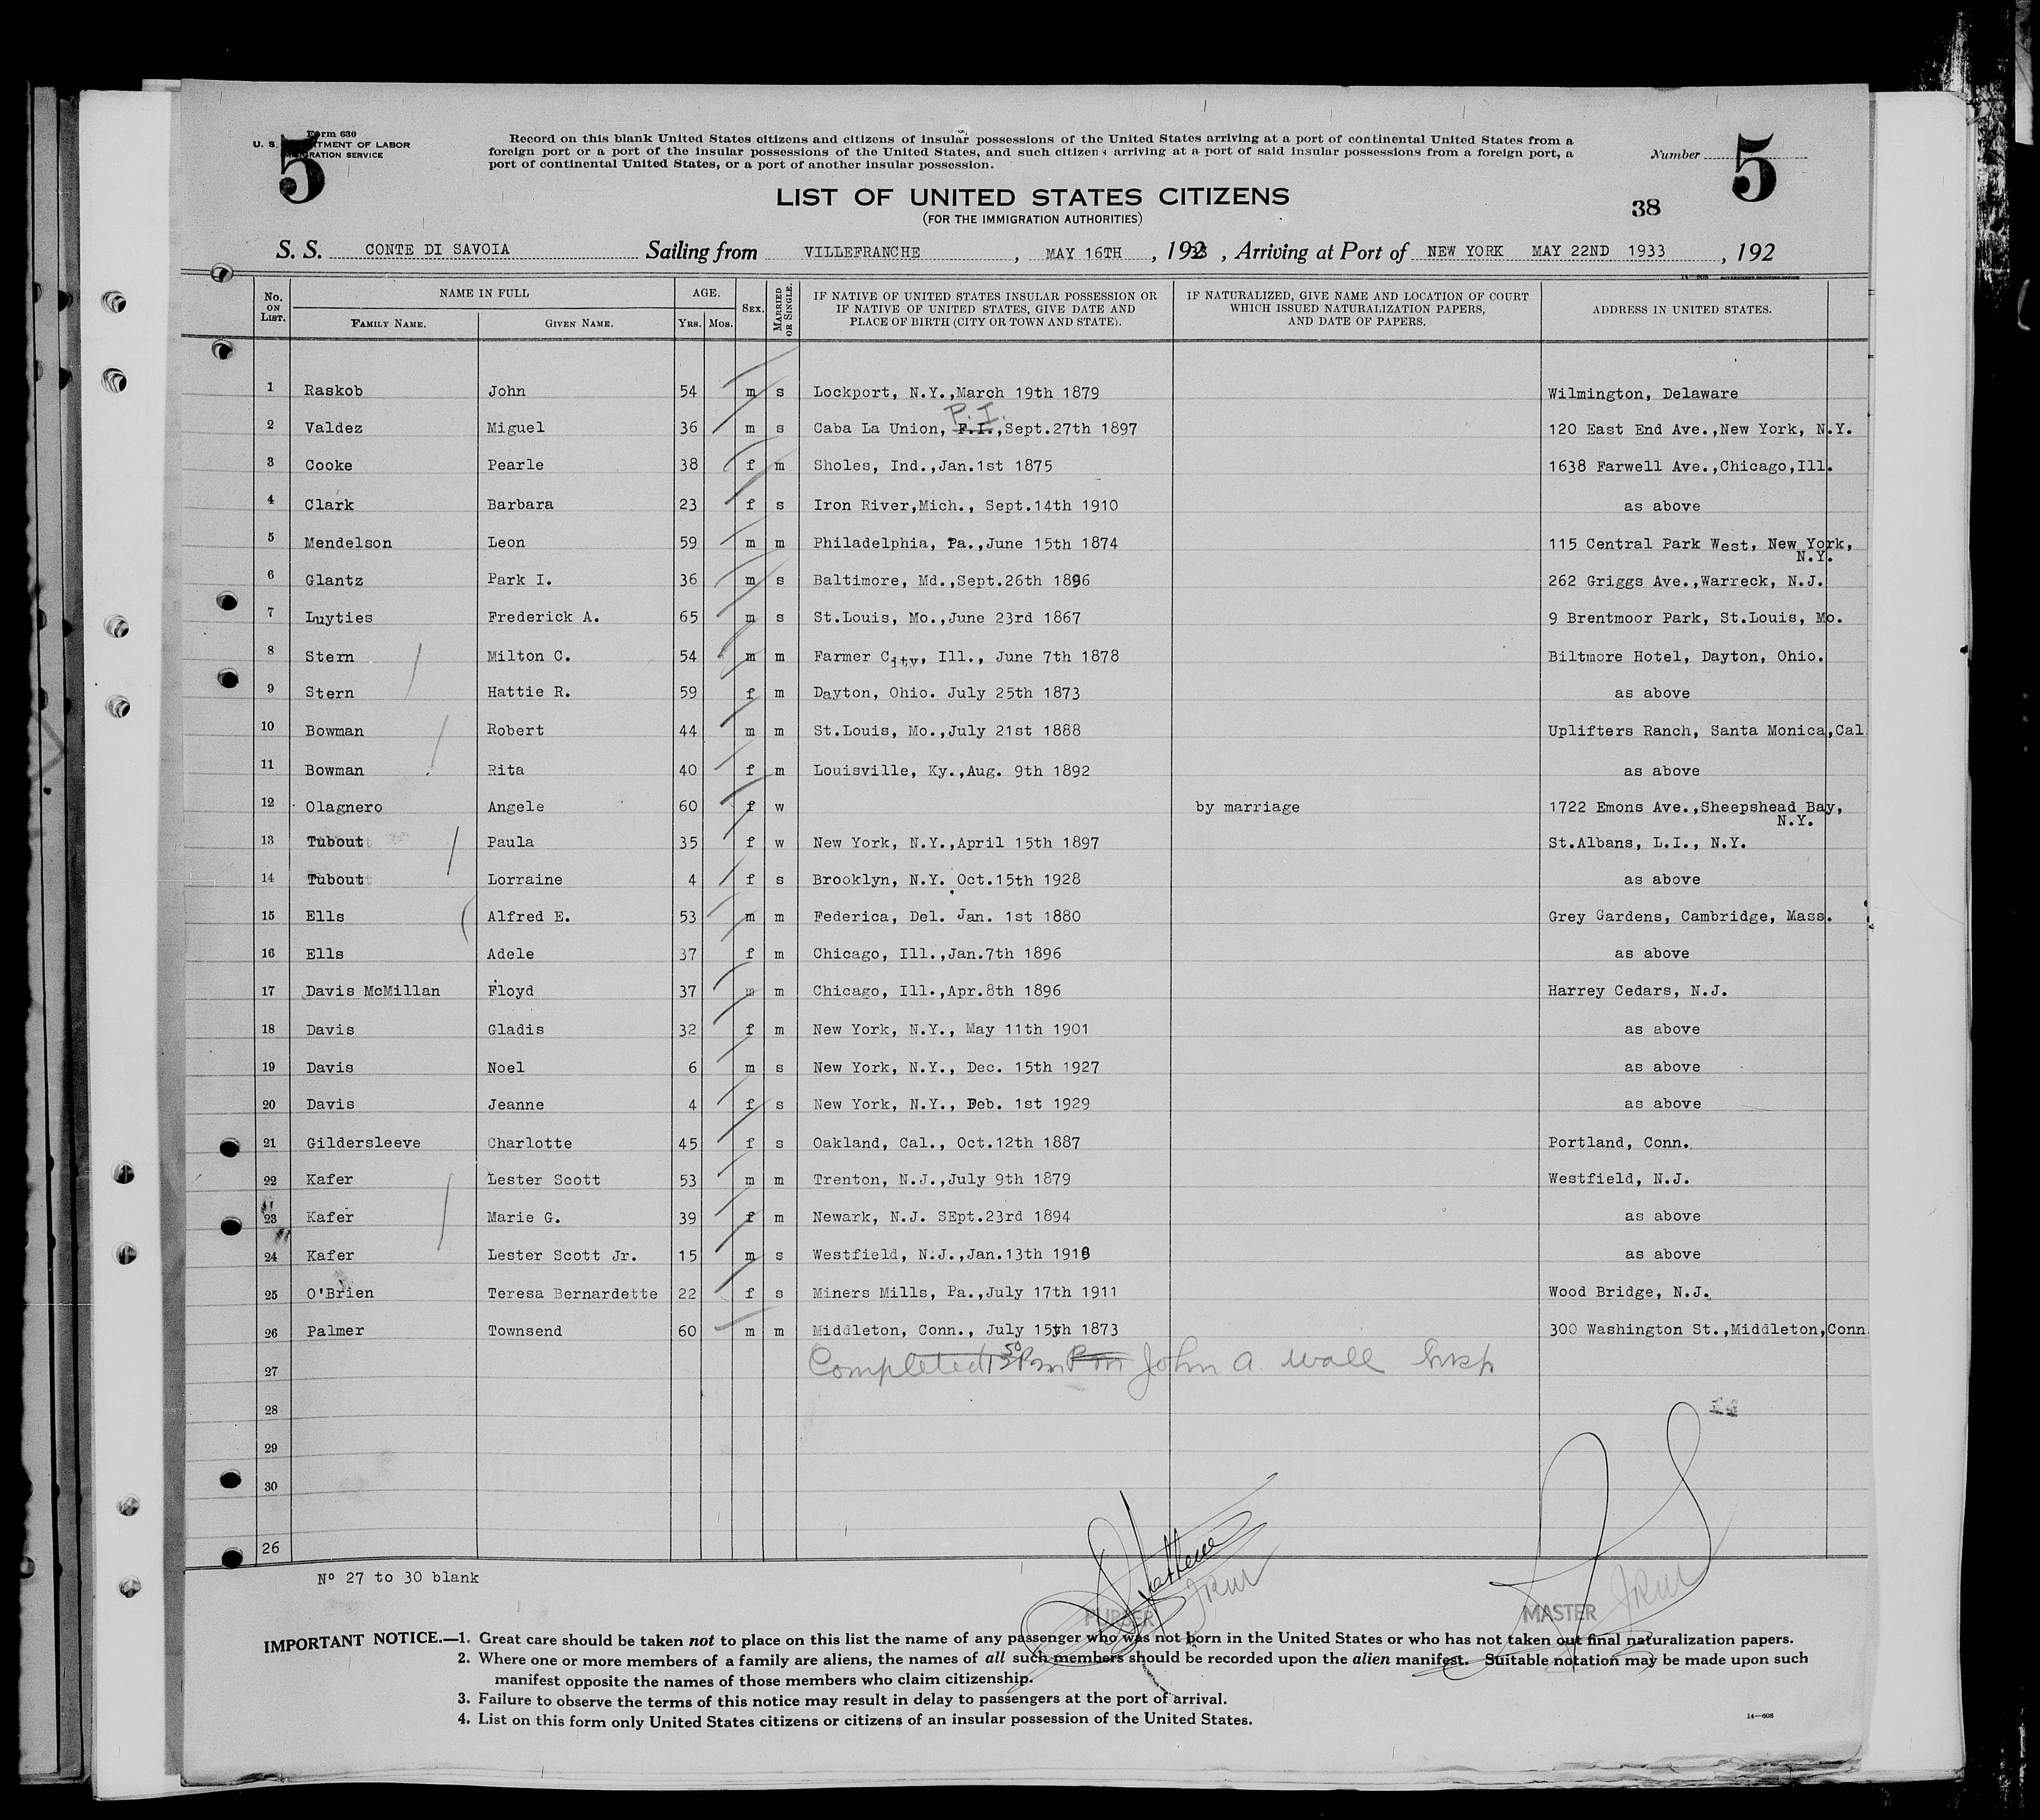 Form 630
U. S. DEPARTMENT OF LABOR
IMMIGRATION SERVICE
5
Record on this blank United States citizens and citizens of insular possessions of the United States arriving at a port of continental United States from a
foreign port or a port of the insular possessions of the United States, and such citizens arriving at a port of said insular possessions from a foreign port, a
port of continental United States, or a port of another insular possession.
Number 5
LIST OF UNITED STATES CITIZENS
(FOR THE IMMIGRATION AUTHORITIES)
38
S. S. CONTE DI SAVOIA Sailing from VILLEFRANCHE, MAY 16TH, 1933, Arriving at Port of NEW YORK MAY 22ND 1933, 192
No. ON LIST. NAME IN FULL FAMILY NAME. GIVEN NAME. AGE. YRS. MOS. SEX. MARRIED OR SINGLE. IF NATIVE OF UNITED STATES INSULAR POSSESSION OR IF NATIVE OF UNITED STATES, GIVE DATE AND PLACE OF BIRTH (CITY OR TOWN AND STATE). IF NATURALIZED, GIVE NAME AND LOCATION OF COURT WHICH ISSUED NATURALIZATION PAPERS, AND DATE OF PAPERS. ADDRESS IN UNITED STATES.
1 Raskob John 54 m s Lockport, N.Y.,March 19th 1879 Wilmington, Delaware
P.I.
2 Valdez Miguel 36 m s Caba La Union, F.I.,Sept.27th 1897 120 East End Ave.,New York, N.Y.
3 Cooke Pearle 38 f m Sholes, Ind.,Jan.1st 1875 1638 Farwell Ave.,Chicago,Ill.
4 Clark Barbara 23 f s Iron River,Mich., Sept.14th 1910 as above
5 Mendelson Leon 59 m m Philadelphia, Pa.,June 15th 1874 115 Central Park West, New York,
N.Y.
6 Glantz Park I. 36 m s Baltimore, Md.,Sept.26th 1896 262 Griggs Ave.,Warreck, N.J.
7 Luyties Frederick A. 65 m s St.Louis, Mo.,June 23rd 1867 9 Brentmoor Park, St.Louis, Mo.
8 Stern Milton C. 54 m m Farmer City, Ill., June 7th 1878 Biltmore Hotel, Dayton, Ohio.
9 Stern Hattie R. 59 f m Dayton, Ohio. July 25th 1873 as above
10 Bowman Robert 44 m m St.Louis, Mo.,July 21st 1888 Uplifters Ranch, Santa Monica,Cal
11 Bowman Rita 40 f m Louisville, Ky.,Aug. 9th 1892 as above
12 Olagnero Angele 60 f w by marriage 1722 Emons Ave.,Sheepshead Bay,
N.Y.
13 Tubout Paula 35 f w New York, N.Y.,April 15th 1897 St.Albans, L.I., N.Y.
14 Tubout Lorraine 4 f s Brooklyn, N.Y. Oct.15th 1928 as above
15 Ells Alfred E. 53 m m Federica, Del. Jan. 1st 1880 Grey Gardens, Cambridge, Mass.
16 Ells Adele 37 f m Chicago, Ill.,Jan.7th 1896 as above
17 Davis McMillan Floyd 37 m m Chicago, Ill.,Apr.8th 1896 Harrey Cedars, N.J.
18 Davis Gladis 32 f m New York, N.Y., May 11th 1901 as above
19 Davis Noel 6 m s New York, N.Y., Dec. 15th 1927 as above
20 Davis Jeanne 4 f s New York, N.Y., Feb. 1st 1929 as above
21 Gildersleeve Charlotte 45 f s Oakland, Cal., Oct.12th 1887 Portland, Conn.
22 Kafer Lester Scott 53 m m Trenton, N.J.,July 9th 1879 Westfield, N.J.
23 Kafer Marie G. 39 f m Newark, N.J. SEpt.23rd 1894 as above
24 Kafer Lester Scott Jr. 15 m s Westfield, N.J.,Jan.13th 1918 as above
25 O'Brien Teresa Bernardette 22 f s Miners Mills, Pa.,July 17th 1911 Wood Bridge, N.J.
26 Palmer Townsend 60 m m Middleton, Conn., July 15th 1873 300 Washington St.,Middleton,Conn
27 Completed John A. Wall Insp
28
29
30
26
Nº 27 to 30 blank
PURSER
MASTER
IMPORTANT NOTICE.—1. Great care should be taken not to place on this list the name of any passenger who was not born in the United States or who has not taken out final naturalization papers.
2. Where one or more members of a family are aliens, the names of all such members should be recorded upon the alien manifest. Suitable notation may be made upon such
manifest opposite the names of those members who claim citizenship.
3. Failure to observe the terms of this notice may result in delay to passengers at the port of arrival.
4. List on this form only United States citizens or citizens of an insular possession of the United States.
14—608